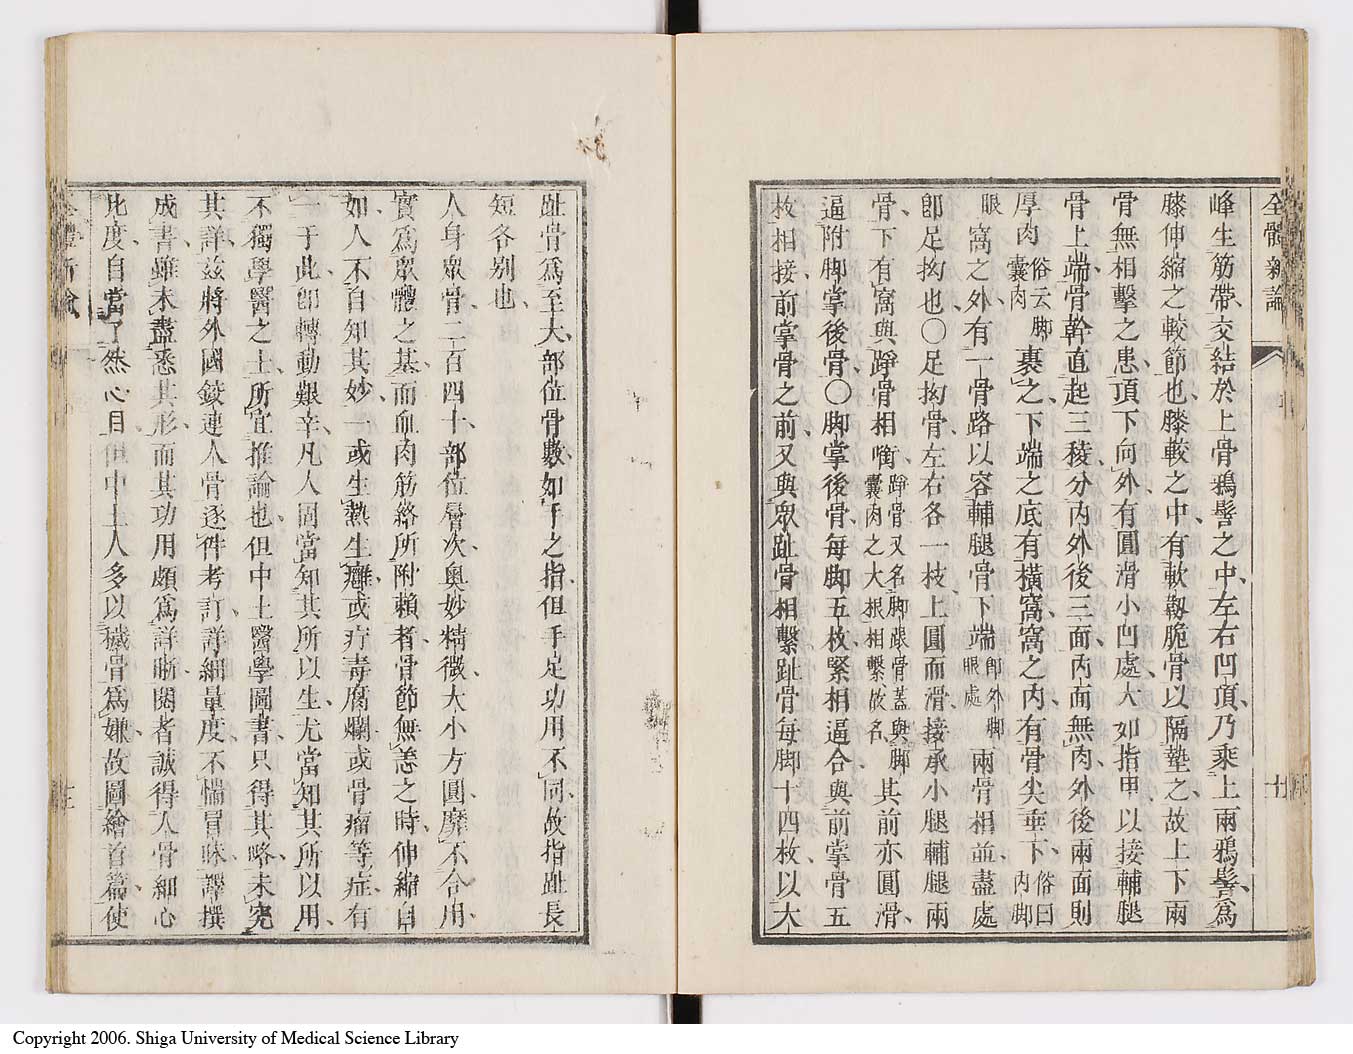 全體新論
峰生筋帶交結於上骨鴉髻之中左右凹頂乃乘上兩鴉髻爲
膝伸縮之較節也膝較之中有軟韌脆骨以隔墊之故上下兩
骨無相擊之患頂下向外有圓滑小凹處大如指甲以接輔腿
骨上端骨幹直起三稜分內外後三面內面無肉外後兩面則
厚肉俗云脚囊肉裹之下端之底有橫窩窩之內有骨尖垂下俗曰內脚
眼窩之外有一骨路以容輔腿骨下端卽外脚眼處兩骨相並盡處
卽足拗也〇足拗骨左右各一枝上圓而滑接承小腿輔腿兩
骨下有窩與踭骨相嘞踭骨又名脚䟴骨蓋與脚囊肉之大根相繫故名其前亦圓滑
逼附脚掌後骨〇脚掌後骨每脚五枚緊相逼合與前掌骨五
枚相接前掌骨之前又與眾趾骨相繫趾骨每脚十四枚以大
趾骨爲至大部位骨數如手之指但手足功用不同故指趾長
短各別也
人身眾骨二百四十部位層次奧妙精微大小方圓靡不合用
實爲眾體之基而血肉筋絡所附賴者骨節無恙之時伸縮自
如人不自知其妙一或生熱生癰或疔毒腐爛或骨瘤等症有
一于此卽轉動艱辛凡人固當知其所以生尤當知其所以用
不獨學醫之士所宜推論也但中土醫學圖書只得其略未究
其詳茲將外國鎹連人骨逐件考訂詳細量度不惴冒昧譯撰
成書雖未盡悉其形而其功用頗爲詳晰閱者誠得人骨細心
比度自當了然心目但中土人多以穢骨爲嫌故圖繪首篇使
Copyright 2006. Shiga University of Medical Science Library